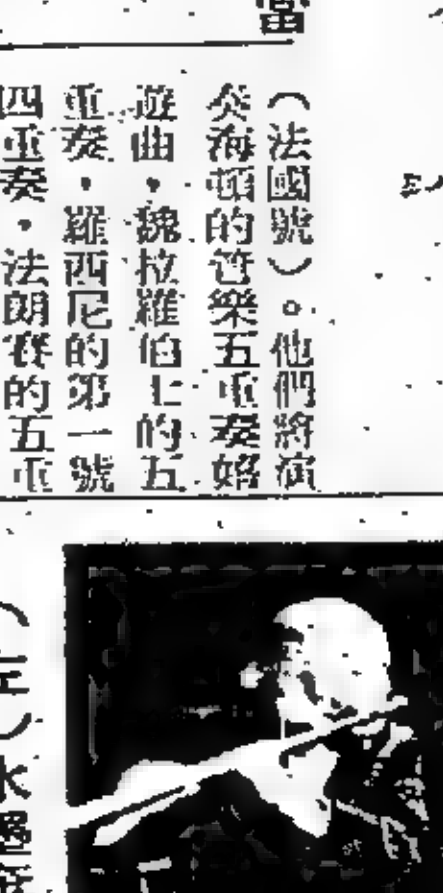 當
（法國號）。他們將演
奏海頓的管樂五重奏嬉
遊曲，魏拉羅伯士的五
重奏，羅西尼的第一號
四重奏，法朗賽的五重